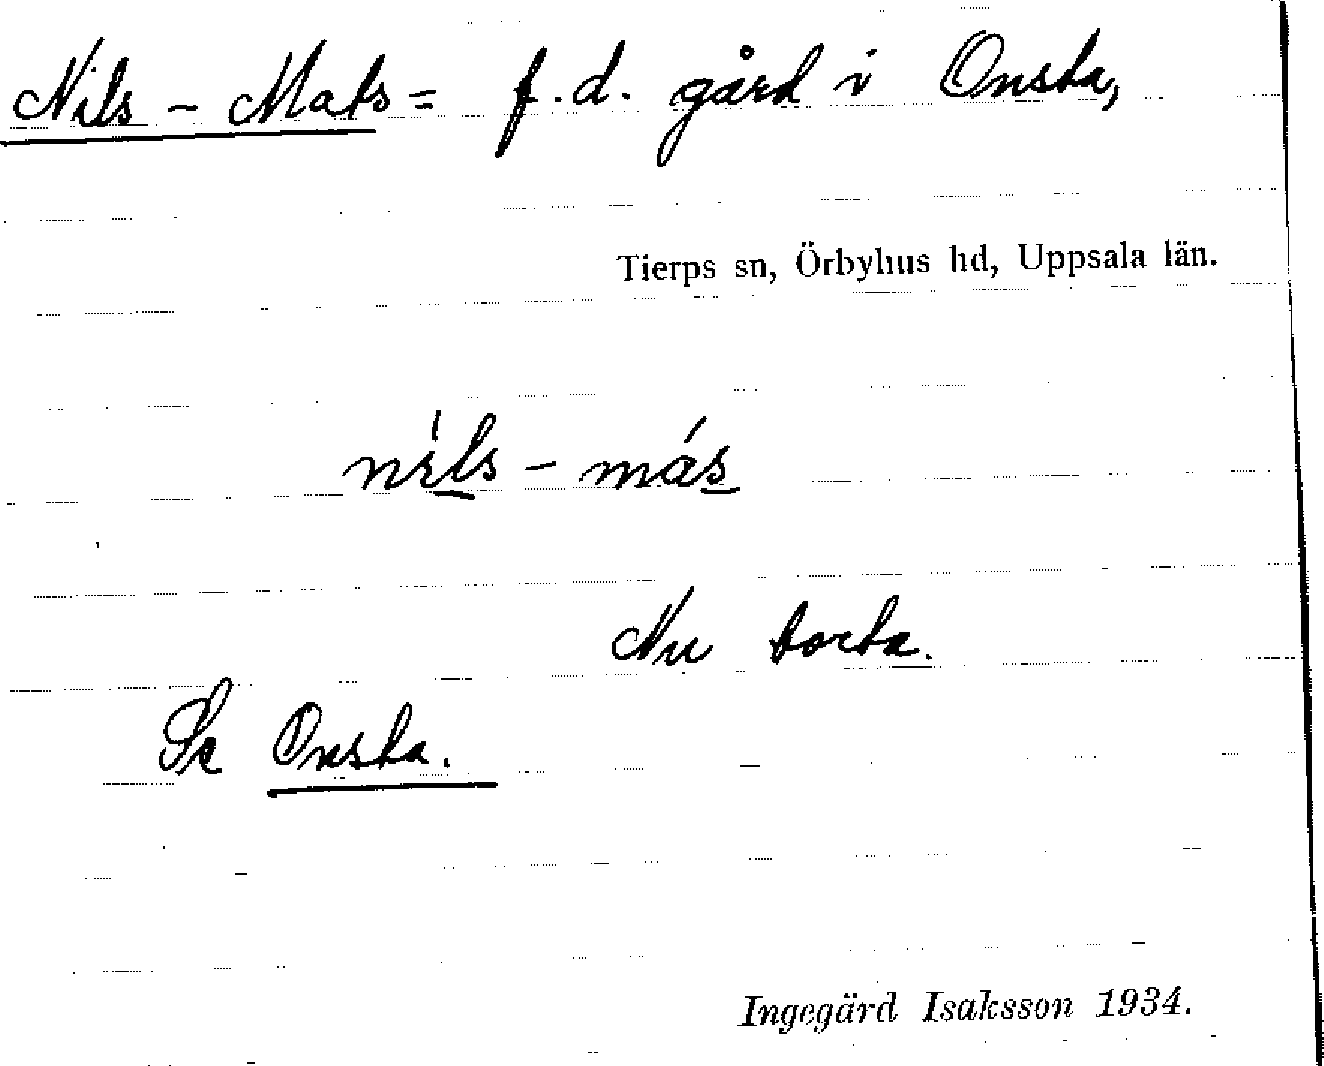 Nils-Mats = f.d. gård i Onsta,
Tierps sn, Örbyhus hd, Uppsala län.
níls - más
Nu borta.
Se Onsta.
Ingegärd Isaksson 1934.